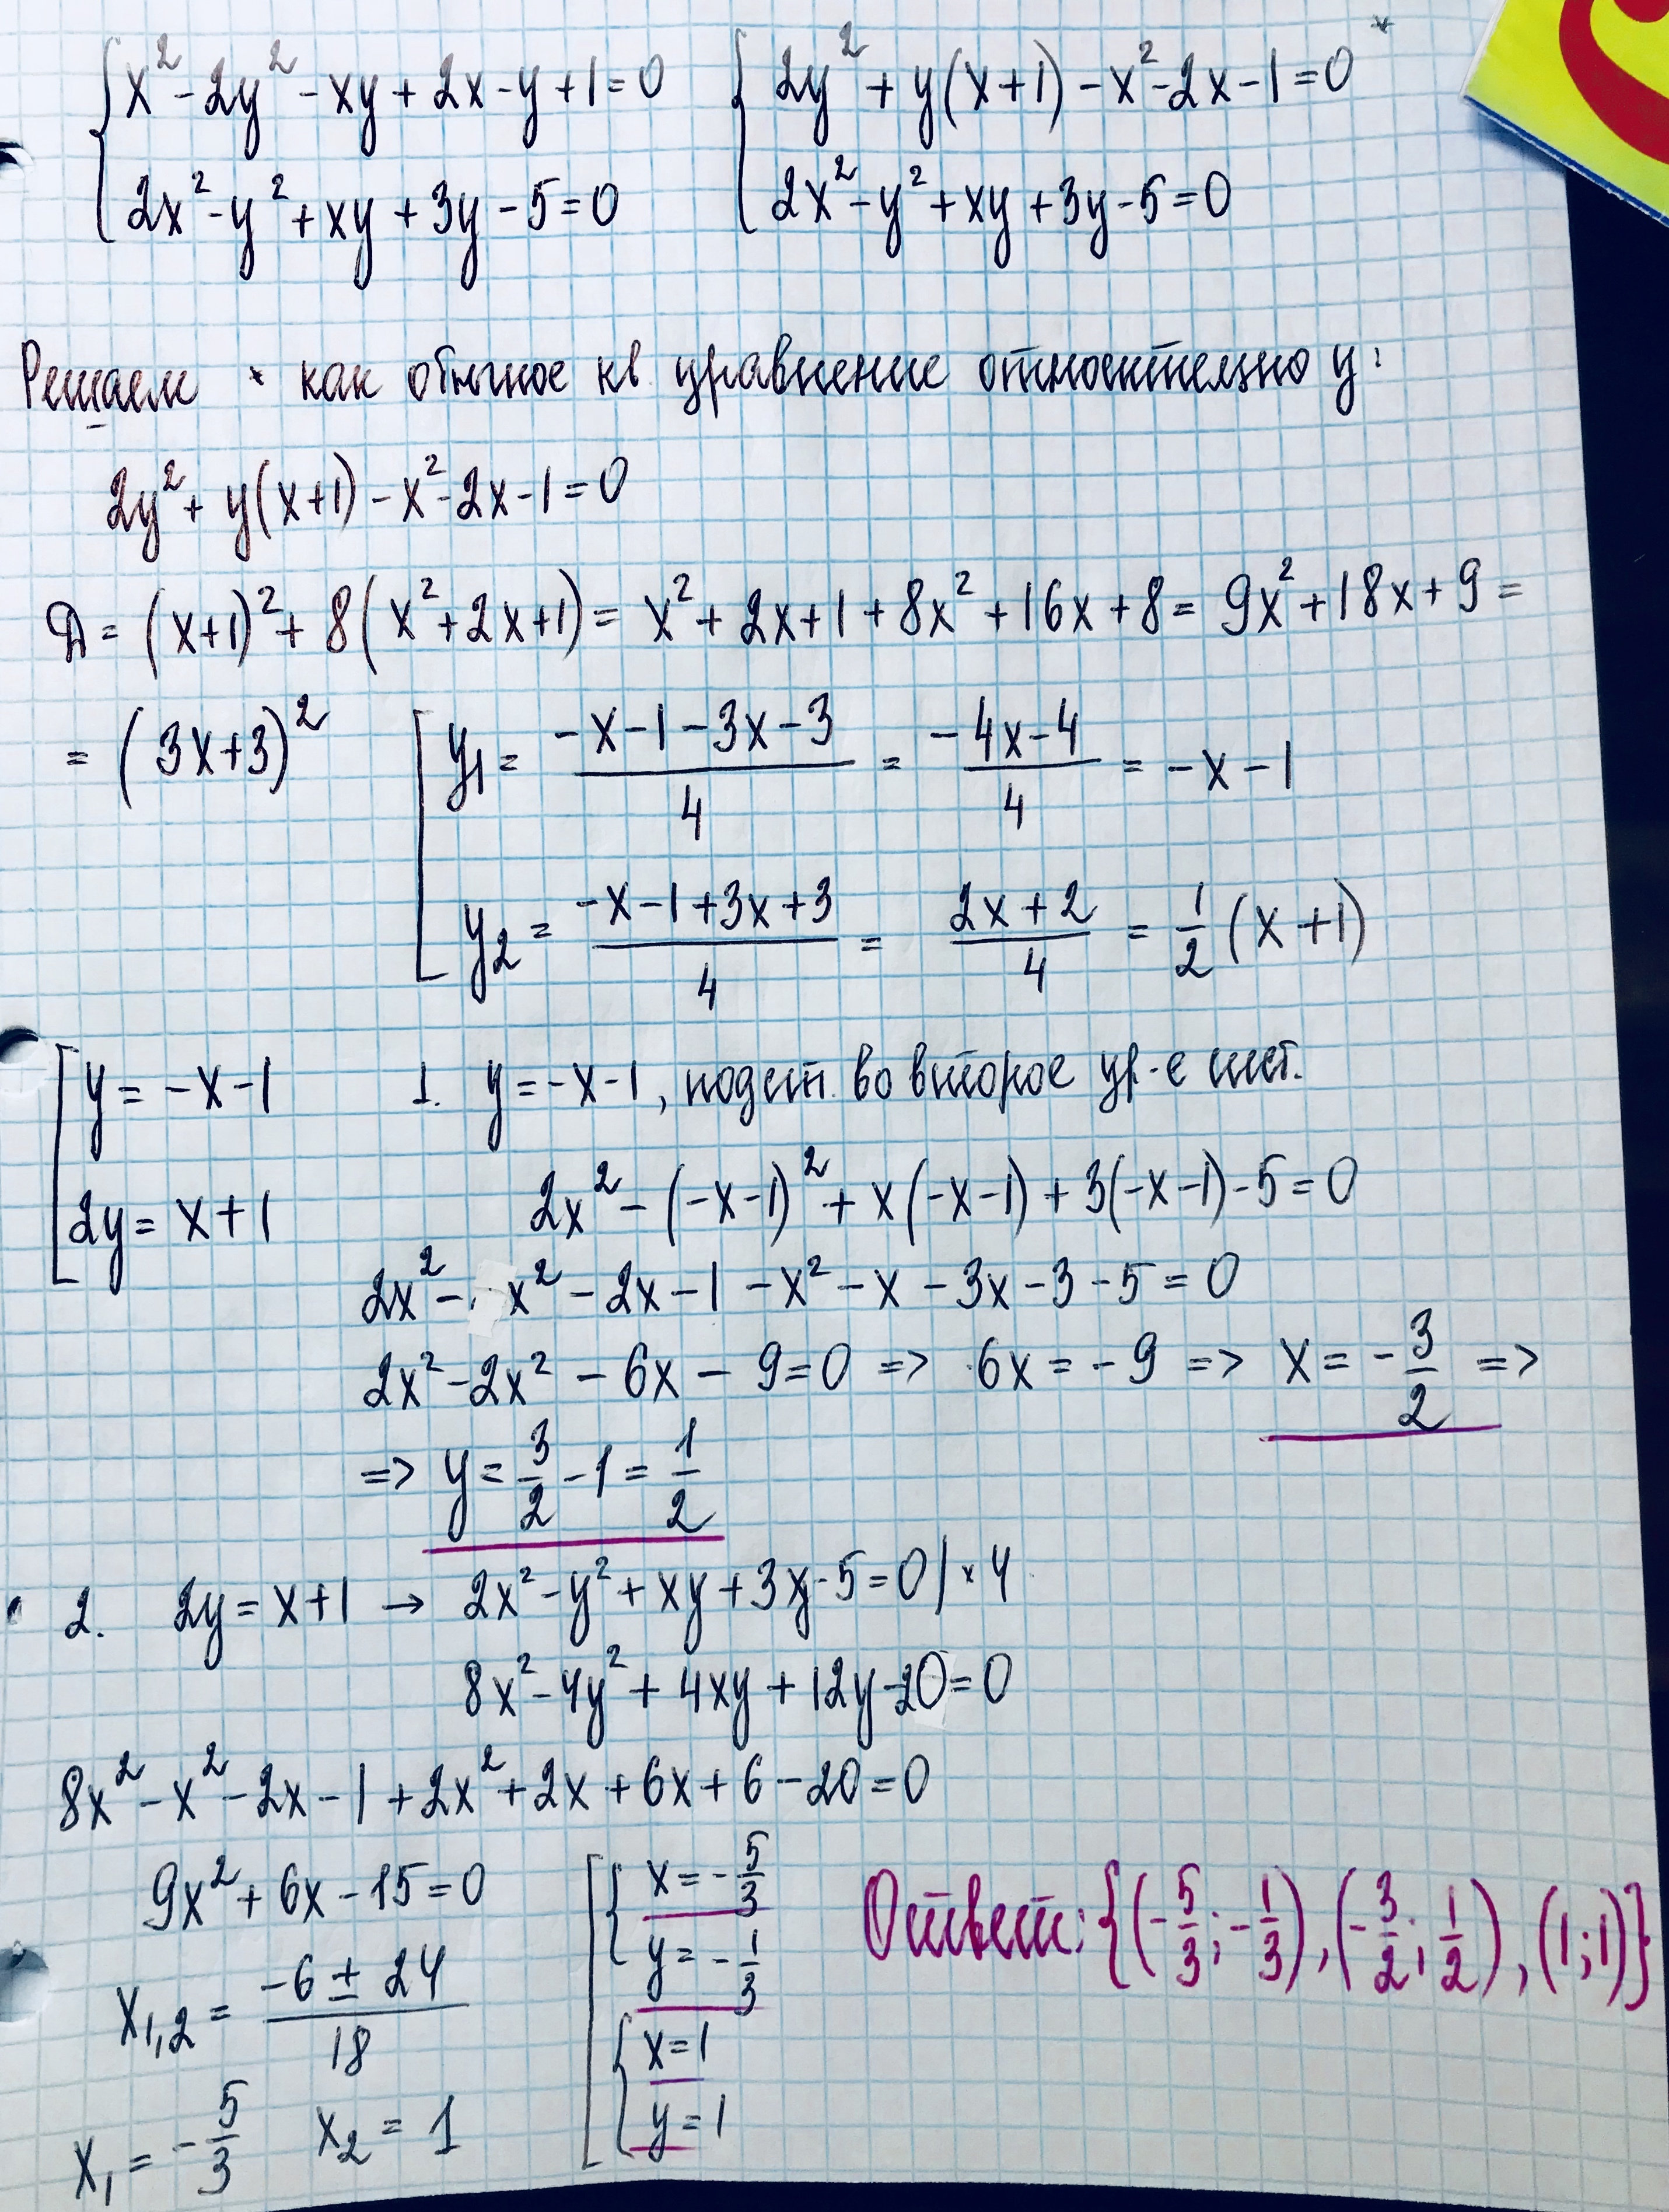 { x² - 2y² - xy + 2x - y + 1 = 0   { 2y² + y(x+1) - x² - 2x - 1 = 0 *
{ 2x² - y² + xy + 3y - 5 = 0   { 2x² - y² + xy + 3y - 5 = 0
Решаем * как обычное кв. уравнение относительно y:
2y² + y(x+1) - x² - 2x - 1 = 0
Д = (x+1)² + 8(x² + 2x + 1) = x² + 2x + 1 + 8x² + 16x + 8 = 9x² + 18x + 9 =
= (3x+3)²   [ y₁ = (-x-1-3x-3)/4 = (-4x-4)/4 = -x-1
[ y₂ = (-x-1+3x+3)/4 = (2x+2)/4 = 1/2 (x+1)
[ y = -x-1   1. y = -x-1, подст. во второе ур-е сист.
[ 2y = x+1   2x² - (-x-1)² + x(-x-1) + 3(-x-1) - 5 = 0
2x² - x² - 2x - 1 - x² - x - 3x - 3 - 5 = 0
2x² - 2x² - 6x - 9 = 0 => 6x = -9 => x = -3/2 =>
=> y = 3/2 - 1 = 1/2
2. 2y = x+1 → 2x² - y² + xy + 3y - 5 = 0 | × 4
8x² - 4y² + 4xy + 12y - 20 = 0
8x² - x² - 2x - 1 + 2x² + 2x + 6x + 6 - 20 = 0
9x² + 6x - 15 = 0   [ { x = -5/3
{ y = -1/3   Ответ: {(-5/3; -1/3), (-3/2; 1/2), (1;1)}
x₁,₂ = (-6 ± 24)/18   { x = 1
x₁ = -5/3   x₂ = 1   { y = 1